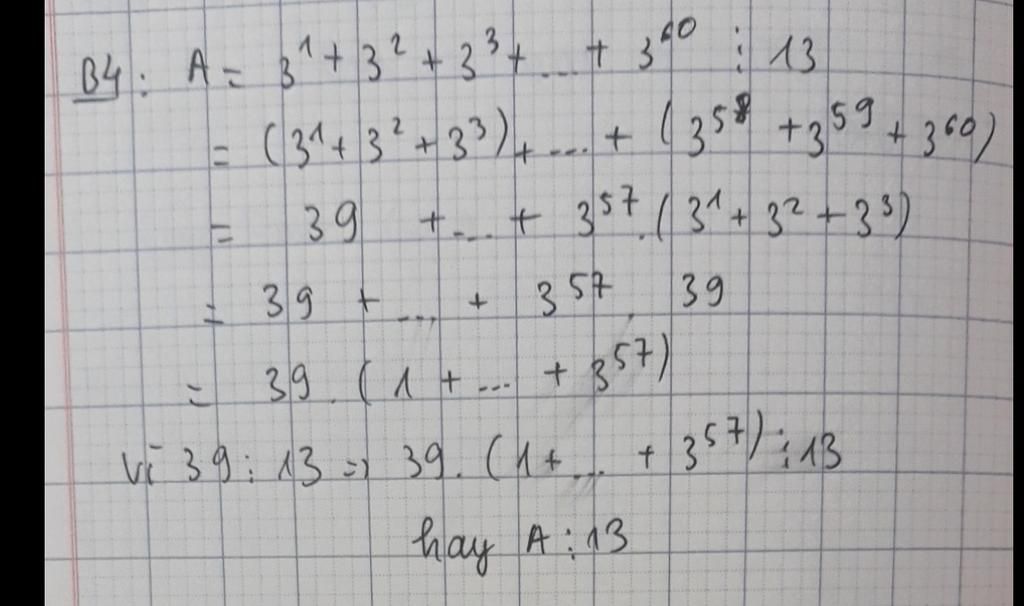 B4: A = 3¹ + 3² + 3³ + ... + 3⁶⁰ ⋮ 13
= (3¹ + 3² + 3³) + ... + (3⁵⁸ + 3⁵⁹ + 3⁶⁰)
= 39 + ... + 3⁵⁷.(3¹ + 3² + 3³)
= 39 + ... + 3⁵⁷. 39
= 39.(1 + ... + 3⁵⁷)
Vì 39 ⋮ 13 => 39.(1 + ... + 3⁵⁷) ⋮ 13
hay A ⋮ 13